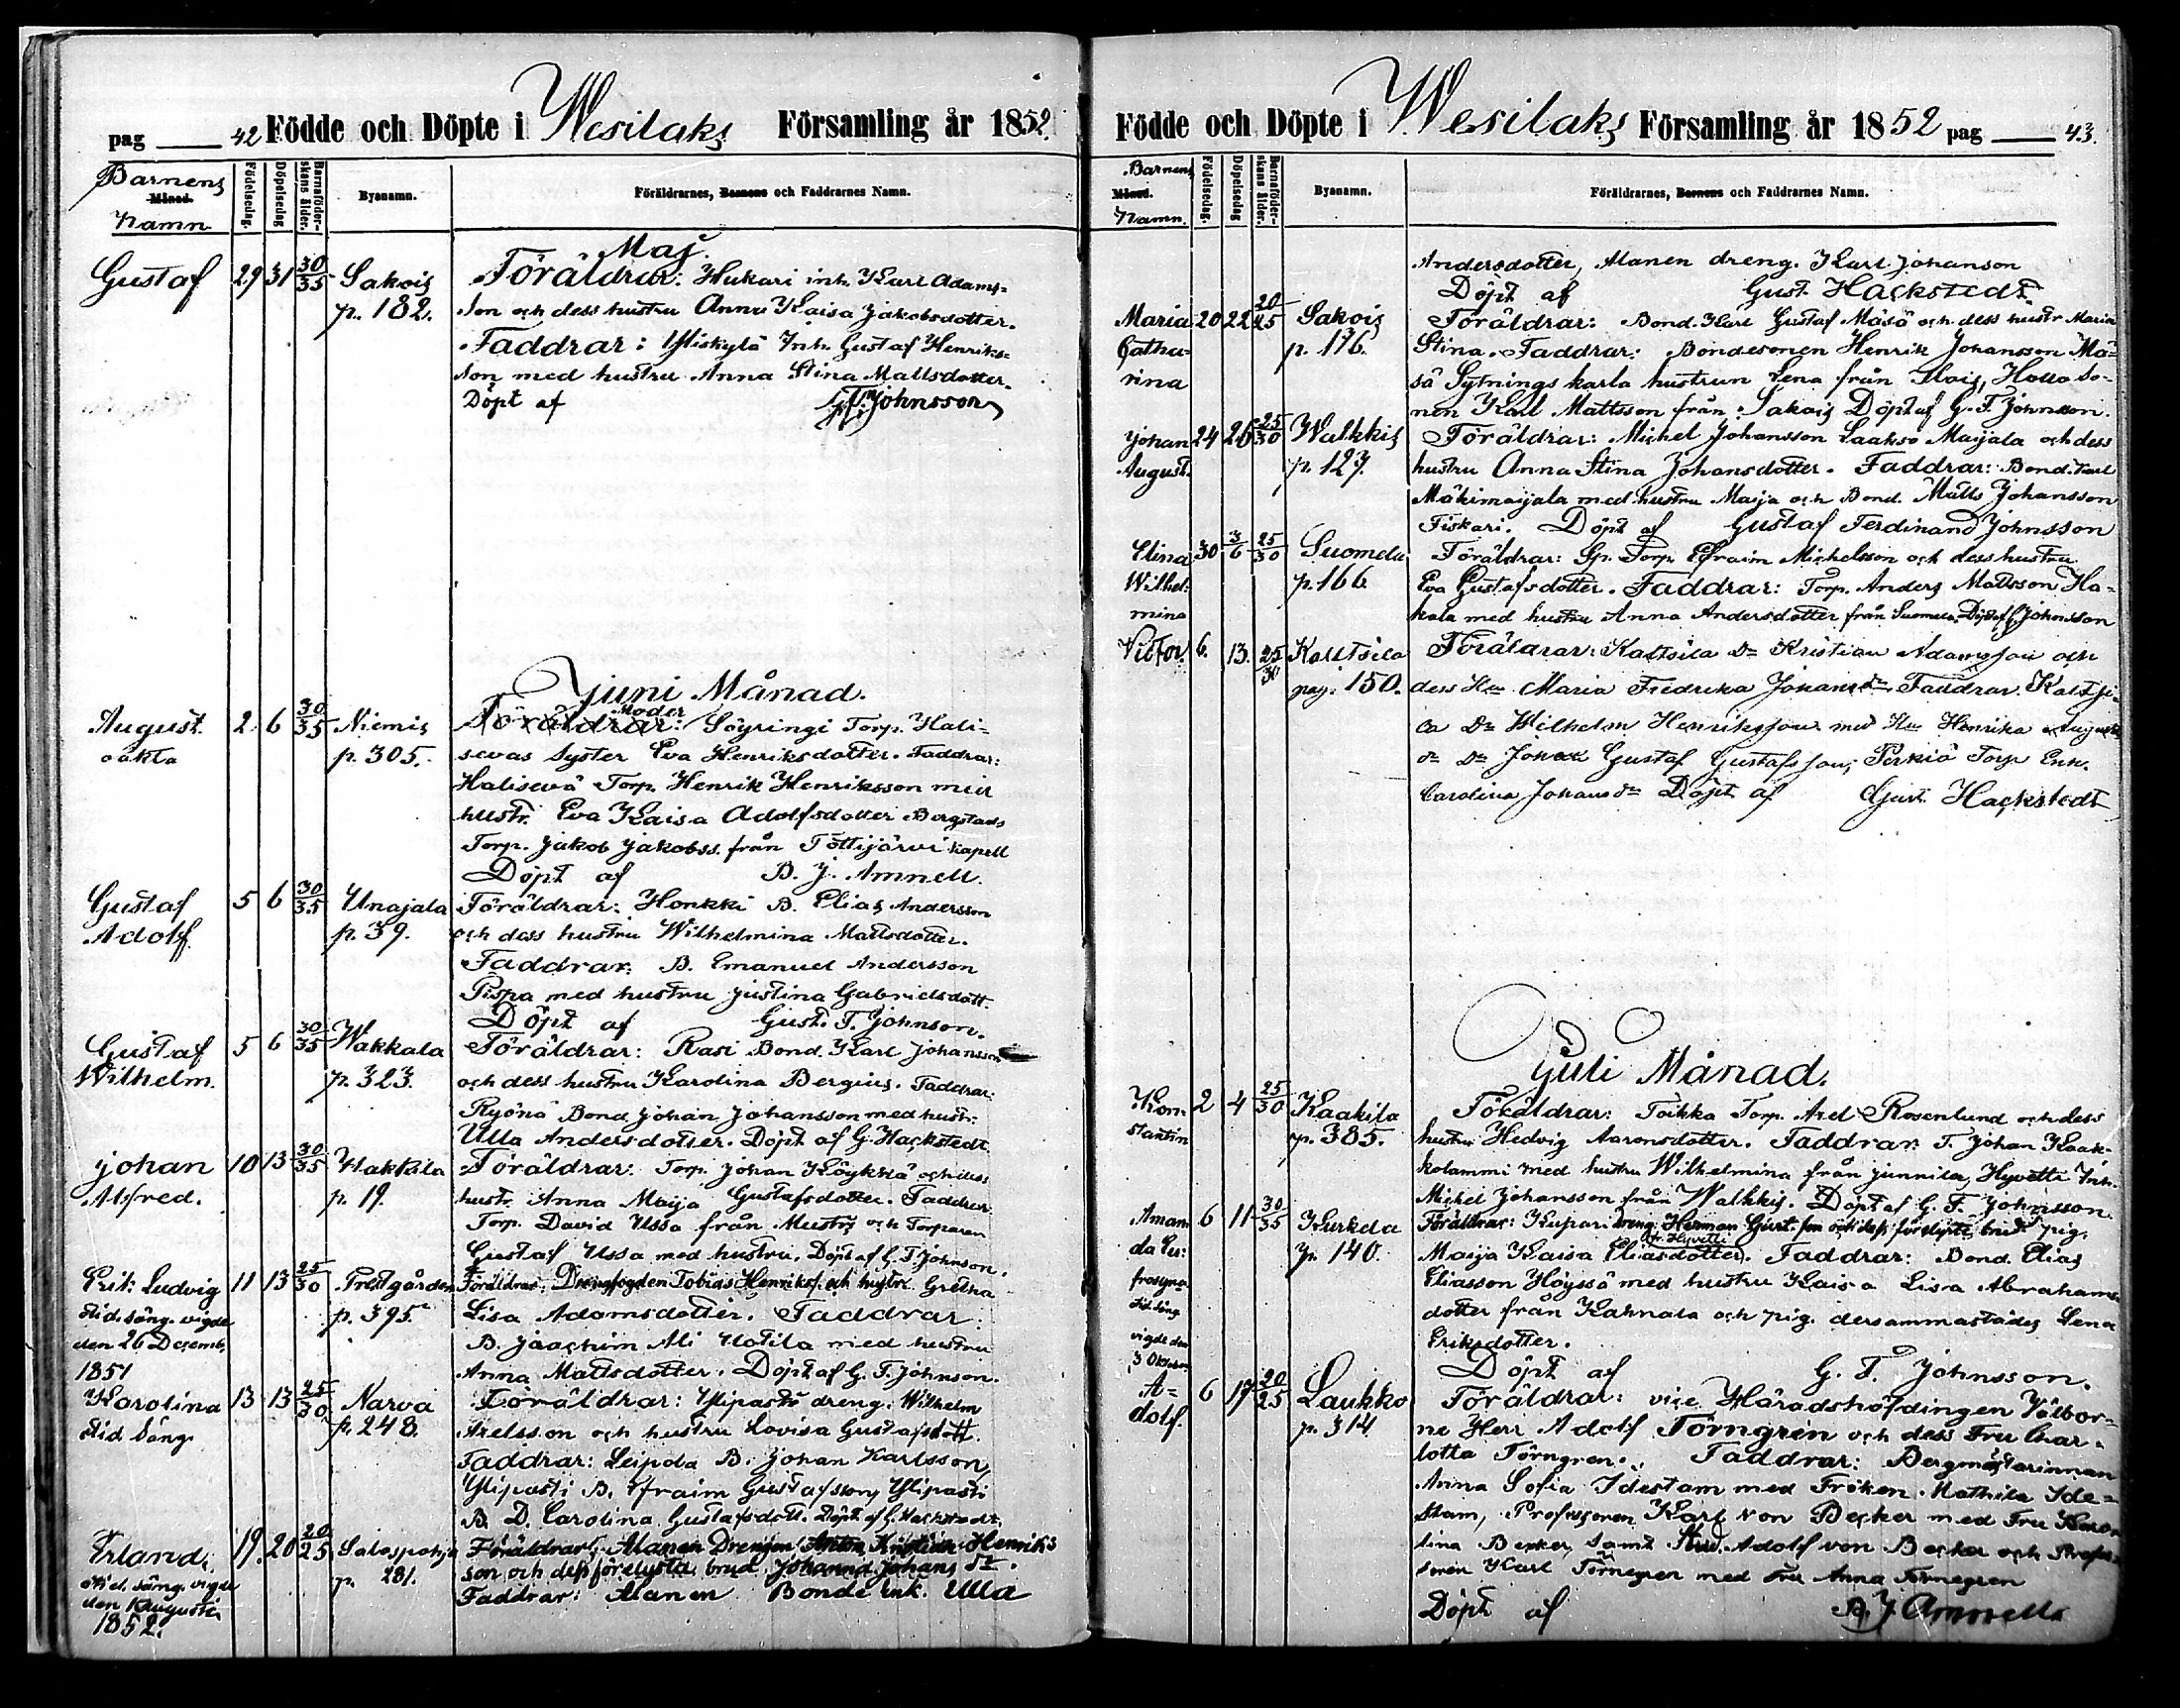 pag 42 Födde och Döpte i Wesilaks Församling år 1852.
Barnens Månad. Namn. Födelsedag. Döpelsedag Barnaföderskans ålder. Byanamn. Föräldrarnes, Barnens och Faddrarnes Namn.
Maj.
Gustaf 29 31 30/35 Sakois Föräldrar: Hukari inh. Karl Adams=
p. 182. son och dess hustru Anna Kaisa Jakobsdotter.
Faddrar: Yliskylä Inh. Gustaf Henriks=
son med hustru Anna Stina Mattsdotter.
Döpt af G. F. Johnsson
Juni Månad.
Moder
August 2 6 30/35 Niemis Föräldrar: Söyringi Torp. Hali=
oäkta p. 305. sevas syster Eva Henriksdotter. Faddrar:
Halisevä Torp. Henrik Henriksson med
hustr. Eva Kaisa Adolfsdotter Bergstads
Torp. Jakob Jakobss. från Tottijärvi kapell
Döpt af B. J. Amnell.
Gustaf 5 6 30/35 Unajala Föräldrar: Honkki B. Elias Andersson
Adolf p. 39. och dess hustru Wilhelmina Mattsdotter.
Faddrar: B. Emanuel Andersson
Pispa med hustru Justina Gabrielsdott.
Döpt af Gust. F. Johnson.
Gustaf 5 6 30/35 Wakkala Föräldrar: Rasi Bond. Karl Johansson
Wilhelm. p. 323. och dess hustru Karolina Bergius. Faddrar:
Ryönä Bond Johan Johansson med hust.
Ulla Andersdotter. Döpt af G. Hackstedt.
Johan 10 13 30/35 Hakkila Föräldrar: Torp. Johan Köykkä och dess
Alfred. p. 19. hustr. Anna Maija Gustafsdotter. Faddrar
Torp. David Ussa från Mustis och Torparen
Gustaf Ussa med hustru. Döpt af G. F. Johnson.
Erik Ludvig 11 13 25/30 Prestgården Föräldrar: Drengfogden Tobias Henriks. och hustru Gretha
tid. säng. vigde p. 395. Lisa Adamsdotter. Faddrar:
den 26 Decemb. B. Joachim Ali Hotila med hustru
1851 Anna Mattsdotter. Döpt af G. F. Johnson.
Karolina 13 13 25/30 Narva Föräldrar: Ylipasti dreng. Wilhelm
tid säng. p. 248. Axelsson och hustru Lovisa Gustafsdott.
Faddrar: Leipola B. Johan Karlsson,
Ylipasti B. Efraim Gustafsson, Ylipasti
B. D. Carolina Gustafsdott. Döpt af G. Hackstedt.
Erland. 19. 20 20/25 Salospohja Föräldrar: Alanen Drengen Anton Kristian Henriks
tid. säng. vigde p. 281. son och dess förelysta brud Johanna Johans dr.
den 1 Augusti Faddrar: Alanen Bonde Enk. Ulla
1852.
Födde och Döpte i Wesilaks Församling år 1852 pag 43.
Barnens Månad. Namn. Födelsedag. Döpelsedag Barnaföderskans ålder. Byanamn. Föräldrarnes, Barnens och Faddrarnes Namn.
Andersdotter, Alanen dreng. Karl Johanson
Döpt af Gust. Hackstedt
Maria 20 22 20/25 Sakois Föräldrar: Bond. Karl Gustaf Mäsä och dess hustr Maria
Catha= p. 176. Stina. Faddrar: Bondesonen Henrik Johansson Mä=
rina sä Sytnings karla hustrun Lena från Palois, Hollo so=
nen Karl Mattsson från Sakois Döpt af G. F. Johnson.
Johan 24 26 25/30 Walkkis Föräldrar: Michel Johansson Laakso Maijala och dess
August. p. 127. hustru Anna Stina Johansdotter. Faddrar: Bond. Karl
Mäkimaijala med hustru Maja och Bond. Matts Johansson
Fiskari. Döpt af Gustaf Ferdinand Johnsson
Elina 30 3/6 25/30 Suomela Föräldrar: Gr. Torp. Efraim Michelsson och dess hustru
Wilhel= p. 166 Eva Gustafsdotter. Faddrar: Torp. Anders Mattsson Ha=
mina kala med hustru Anna Andersdotter från Suomela. Döpt af G. Johnsson
Victor. 6. 13. 25/30 Kaltsila Föräldrar: Kaltsila Dr Kristian Adamsson och
pag. 150. dess Hu Maria Fredrika Johansdr Faddrar: Kaltsi=
la Dr Wilhelm Henriksson med Hu Henrika August
dr Dr Johan Gustaf Gustafsson, Perkiö Torp Enk.
Carolina Johansdr Döpt af Gust. Hackstedt
Juli Månad.
Kon= 2 4 25/30 Kaakila Föräldrar: Toikka Torp. Axel Rosenlund och dess
stantin p. 385. hustru Hedvig Aaronsdotter. Faddrar: T. Johan Kaak=
kolammi med hustru Wilhelmina från Junnila, Hyvetti Inh.
Michel Johansson från Walkkis. Döpt af G. F. Johnsson.
Aman= 6 11 30/35 Kurkela Föräldrar: Kupari dreng. Herman Gust. son och dess förelysta brud pig.
fr. Hyvetti
da Eu= p. 140. Maija Kaisa Eliasdotter. Faddrar: Bond. Elias
frosyna Eliasson Höyssä med hustru Kaisa Lisa Abrahams=
tid säng dotter från Kahnala och pig. dersammastädes Lena
vigde den Eriksdotter.
3 Oktober Döpt af G. F. Johnsson.
A= 6 17 20/25 Laukko Föräldrar: vice Häradshöfdingen Välbor=
dolf. p. 314 ne Herr Adolf Törngren och dess Fru Char=
lotta Törngren. Faddrar: Bergmästarinnan
Anna Sofia Idestam med Fröken Mathila Ide=
stam, Professoren Karl von Becker med Fru Karo=
lina Becker, samt Stud. Adolf von Becker och Profes=
soren Karl Törnegren med Fru Anna Törnegren
Döpt af B. J. Amnell